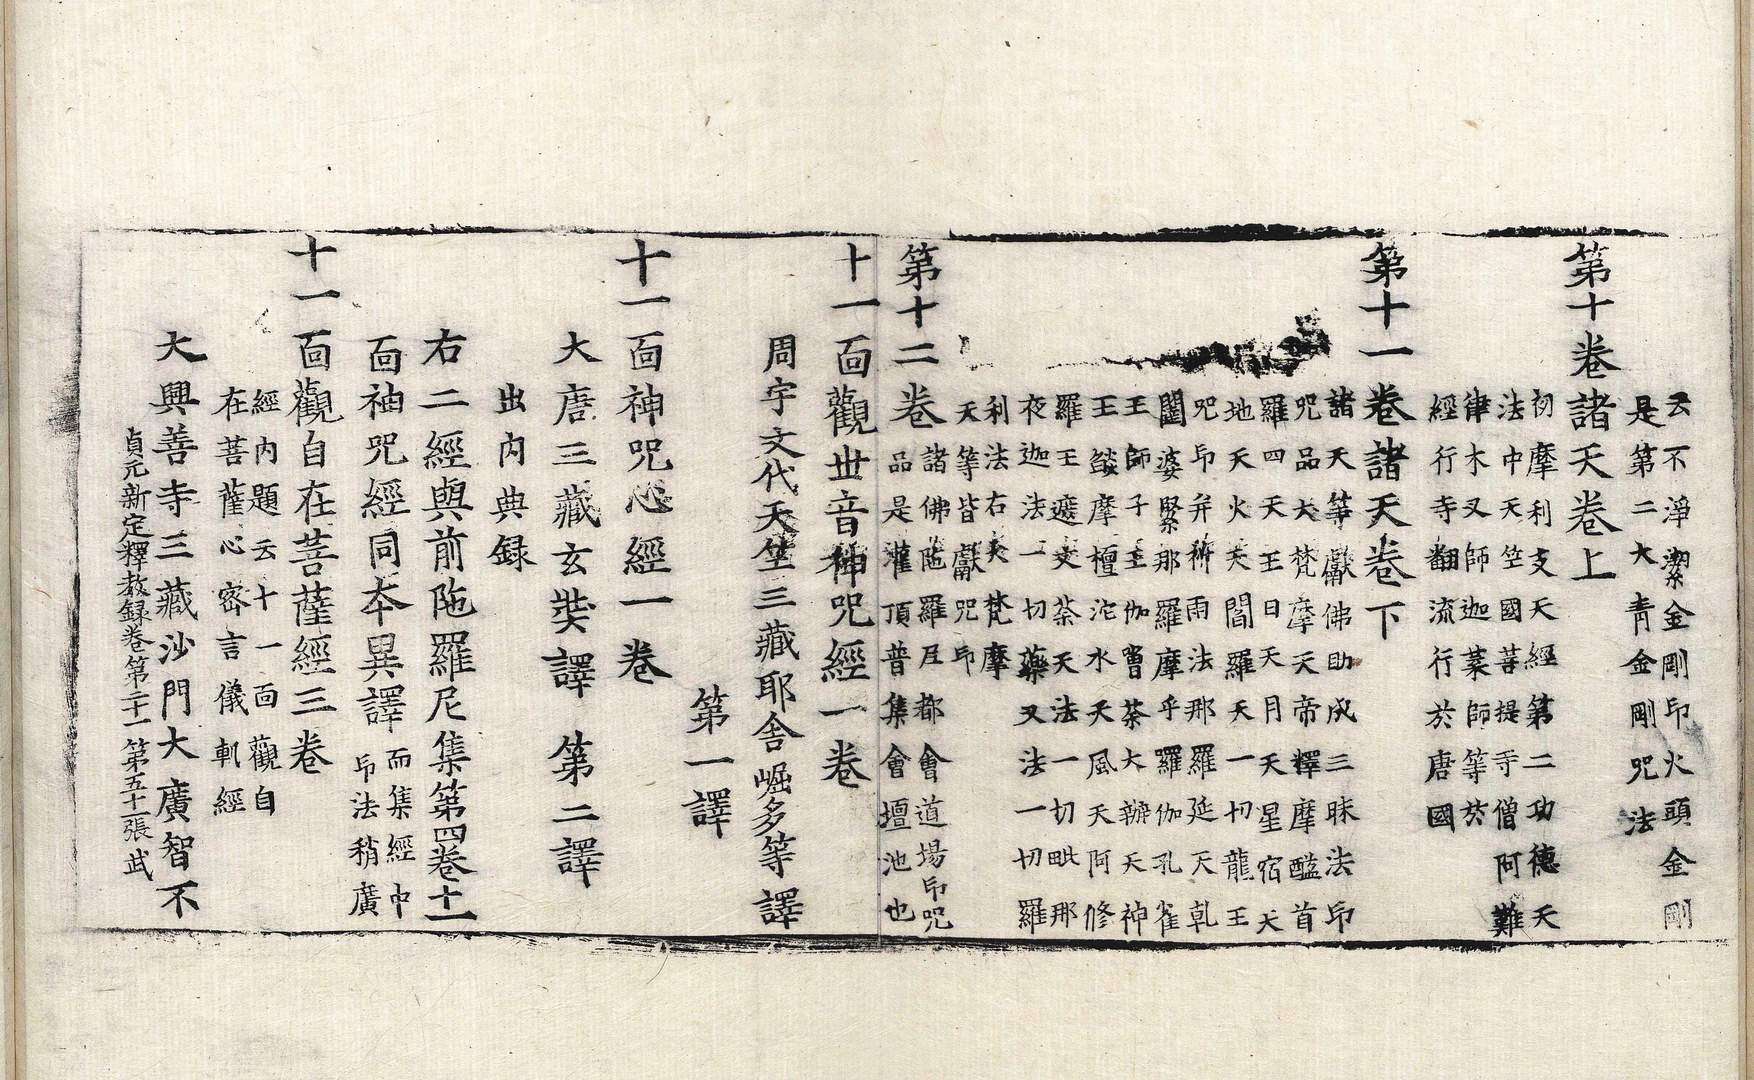 云不淨潔金剛印火頭金剛
是第二大青金剛咒法
第十卷諸天卷上
初摩利支天經第二功德天
法中天竺國菩提寺僧阿難
律木叉師迦葉師等於
經行寺翻流行於唐國
第十一卷諸天卷下
諸天等獻佛助成三昧法印
咒品大梵摩天帝釋摩醯首
羅四天王日天月天星宿天
地天火天閻羅天一切龍王
咒印并祈雨法那羅延天乹
闥婆緊那羅摩乎羅伽孔雀
王師子王伽嘗荼大辦天神
王燄摩檀沱水天風天阿修
羅王遮文荼天法一切毗那
夜迦法一切藥叉法一切羅
利法右夾梵摩
天等皆獻咒印
第十二卷
諸佛陁羅尼都會道場印咒
品是灌頂普集會壇池也
十一面觀世音神咒經一卷
周宇文代天竺三藏耶舍崛多等譯
第一譯
十一面神咒心經一卷
大唐三藏玄奘譯 第二譯
出內典録
右二經與前陁羅尼集第四卷十一
面神咒經同本異譯
而集經中
印法稍廣
十一面觀自在菩薩經三卷
經內題云十一面觀自
在菩薩心密言儀軌經
大興善寺三藏沙門大廣智不
貞元新定釋教録卷第二十一 第五十二張 武